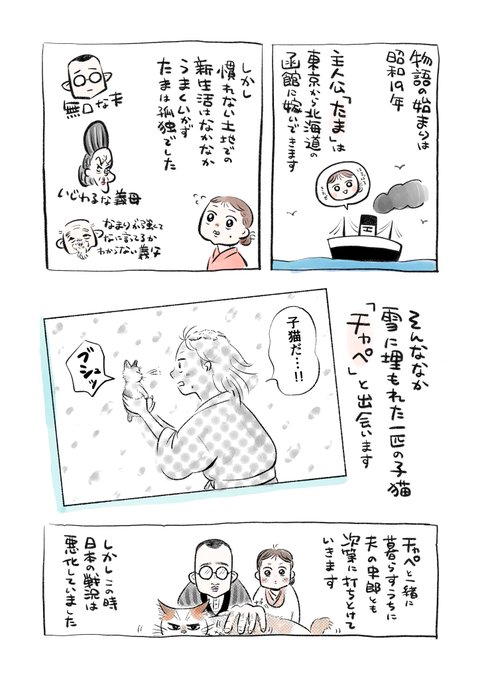 物語の始まりは
昭和19年
主人公「たま」は
東京から北海道の
函館に嫁いできます
しかし
慣れない土地での
新生活はなかなか
うまくいかず
たまは孤独でした
無口な夫
いじわるな義母
なまりが強くて
なに言ってるか
わからない義父
そんななか
雪に埋もれた一匹の子猫
「チャペ」と出会います
子猫だ…!!
ブシュッ
チャペと一緒に
暮らすうちに
夫の忠郎とも
次第に打ちとけて
いきます
しかしこの時
日本の戦況は
悪化していました